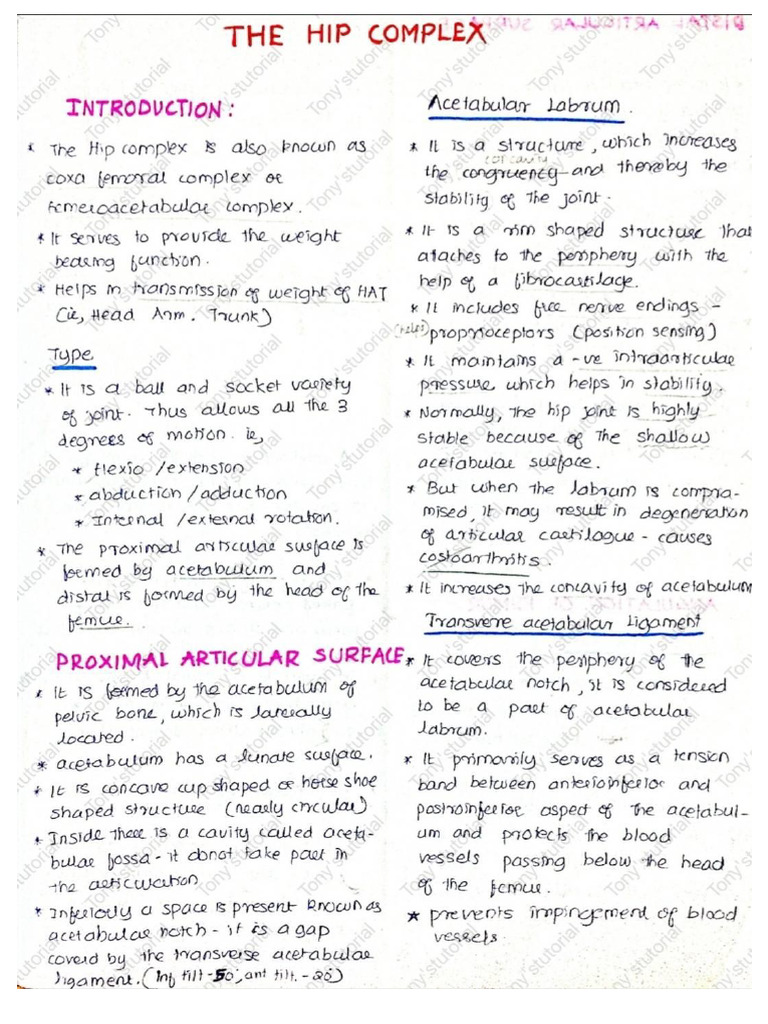 THE HIP COMPLEX
INTRODUCTION:
* The Hip complex is also known as
coxa femoral complex or
femeroacetabular complex.
* It serves to provide the weight
bearing function.
* Helps in transmission of weight of HAT
(ie, Head Arm. Trunk)
Type
* It is a ball and socket variety
of joint. Thus allows all the 3
degrees of motion. ie,
* flexio /extension
* abduction /adduction
* Internal /external rotation.
* The proximal articular surface is
formed by acetabulum and
distal is formed by the head of the
femur.
PROXIMAL ARTICULAR SURFACE
* It is formed by the acetabulum of
pelvic bone, which is laterally
located.
* acetabulum has a lunate surface.
* It is concave cup shaped or horse shoe
shaped structure (nearly circular)
* Inside there is a cavity called aceta-
bular fossa - it donot take part in
the articulation
* Inferiorly a space is present known as
acetabular notch - it is a gap
coverd by the transverse acetabular
ligament. (Inf tilt -50°, ant tilt. - 20°)
Acetabular Labrum.
* It is a structure, which increases
concavity
the congruency and thereby the
stability of the joint.
* It is a rim shaped structure that
ataches to the periphery with the
help of a fibrocartilage.
* It includes free nerve endings -
(helps) proprioceptors (position sensing)
* It maintains a -ve intraarticular
pressure which helps in stability.
* Normally, the hip joint is highly
stable because of the shallow
acetabular surface.
* But when the labrum is compra-
mised, it may result in degeneration
of articular cartilogue - causes
costoarthritis.
* It increases the concavity of acetabulum
Transverse acetabular Ligament
* It covers the periphery of the
acetabular notch, it is considered
to be a part of acetabular
labrum.
* It primarily serves as a tension
band between anterioinferior and
postroinferior aspect of the acetabul-
um and protects the blood
vessels passing below the head
of the femur.
* prevents impingement of blood
vessels.
Tony'stutorial